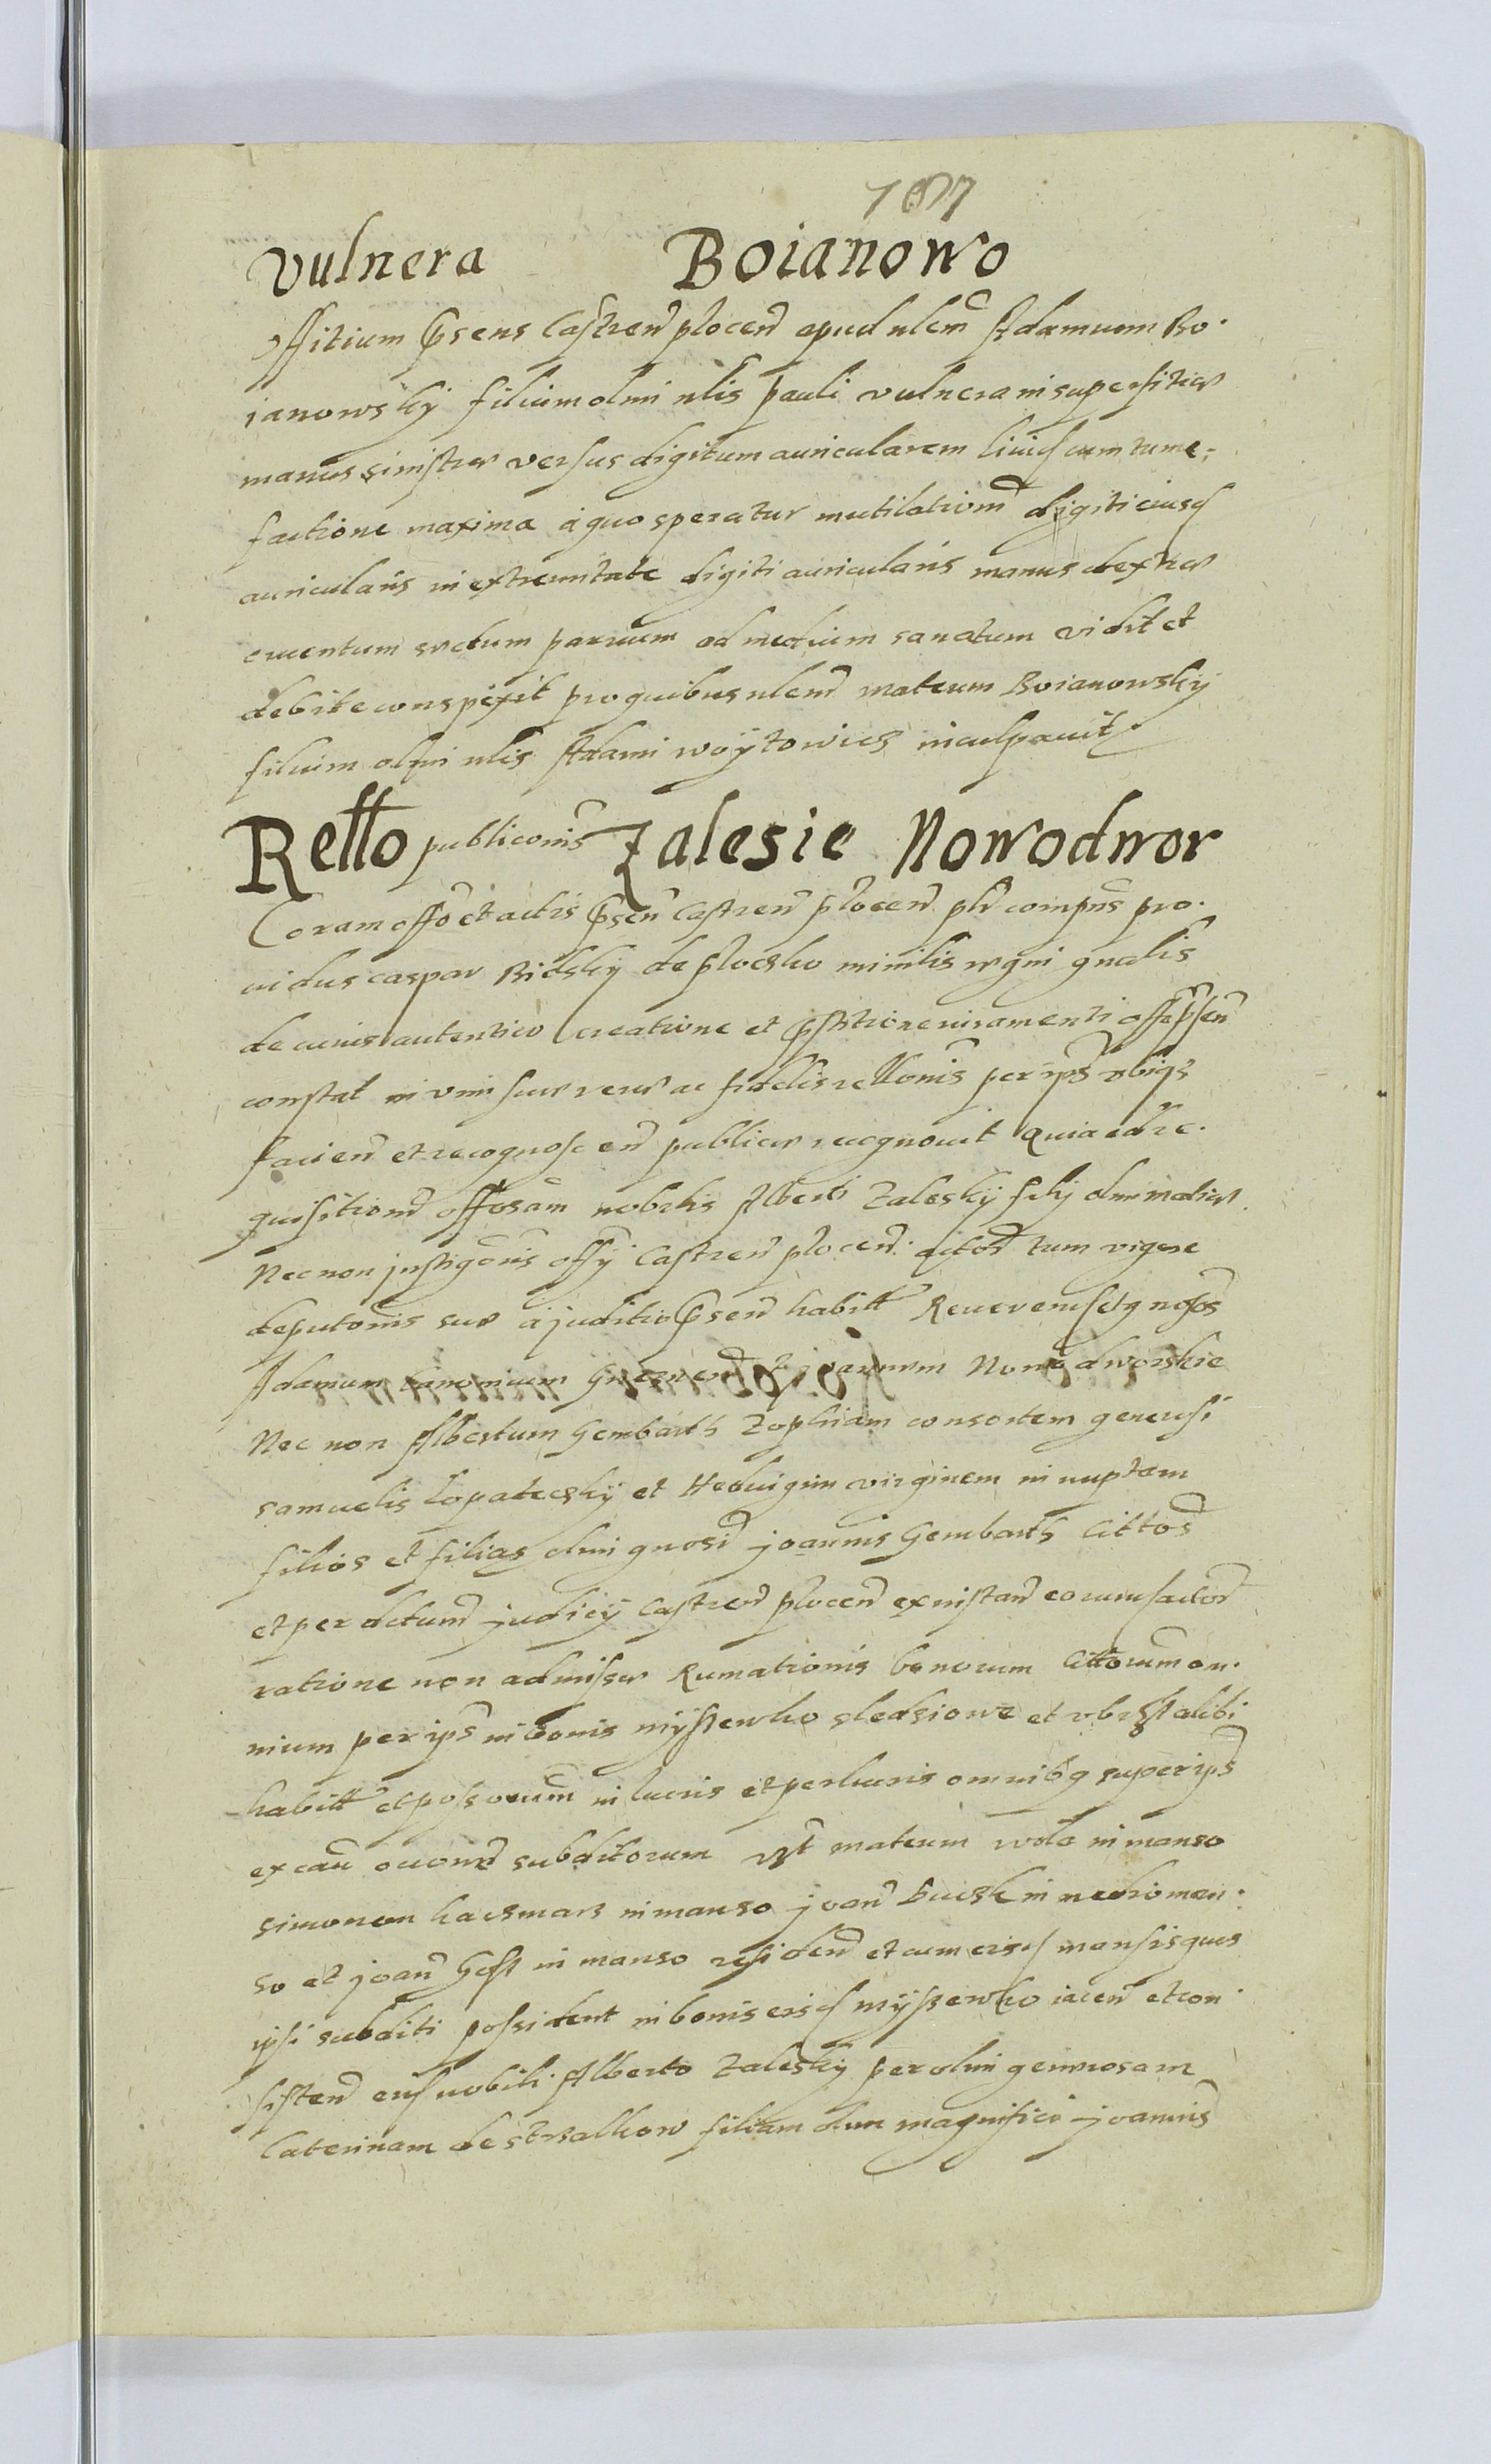 1077
Vulnera Boianowo
Offitium Psens Castren plocen apud nlem Adamum Bo.
ianowsky filium olmi nlis Pauli vulnera in superfitie
manus sinistrae versus digitum auricularem liuid cum tume.
factione maxima a quo speratur mutilationem digiti eiusd
auricularis in extremitate digiti auricularis manus dextrae
cruentum ictum paruum ad medium sanatum vidit et
debite conspexit pro quibus nlem mateum Boianowsky
filium olmi nlis Adami woytowicz inculpauit
Retto publiconis Zalesie Nowodwor
Coram offo et actis Psen Castren plocen plr compns pro.
uidus caspar Bidsky de plocsko minilis regni gnalis
de cuius autentico creatione et Pstitione iuramenti offo Psen
constat in vim suae verae ac fidelis rellonis per ips vbiqs
facien et recognoscen publicae recognouit Quia ad re.
quisitionem offosam nobilis Alberti Zalesky filij olmi mathiae
Nec non jnstigoris offy Castren plocen actor tum vigore
deputonis suae a juditio Psen habitt Reuerend et gnosos
Adamum Canonicum Gneznen et joannem Nowodworskie
Nec non Albertum Gembarth Zophiam consortem generosi
samuelis Lopatecsky et Heduigim virginem in nuptam
filios et filias olmi gnosi joannis Gembarth Cittos
et per dctum judicij Castren plocen ex instan eorund actor
ratione non admissae Rumationis bonorum Cittorum om.
nium per ips in bonis myssewko sledsiowe et vbiss alibi
habitt et possorum in lucris et perlucris omnibq super ips
ex cau occone subditorum vt mateum wola in manso
simonem kacsmars in manso joan Bucsk in medio man.
so et joan Gost in manso residen et cum eisd mansis quos
ipsi subditi possident in bonis eisd myssewko iacen et con.
sisten eid nobili Alberto Zalesky per olmi generosam
Caterinam de strsalkow filiam olim magnifici joannis